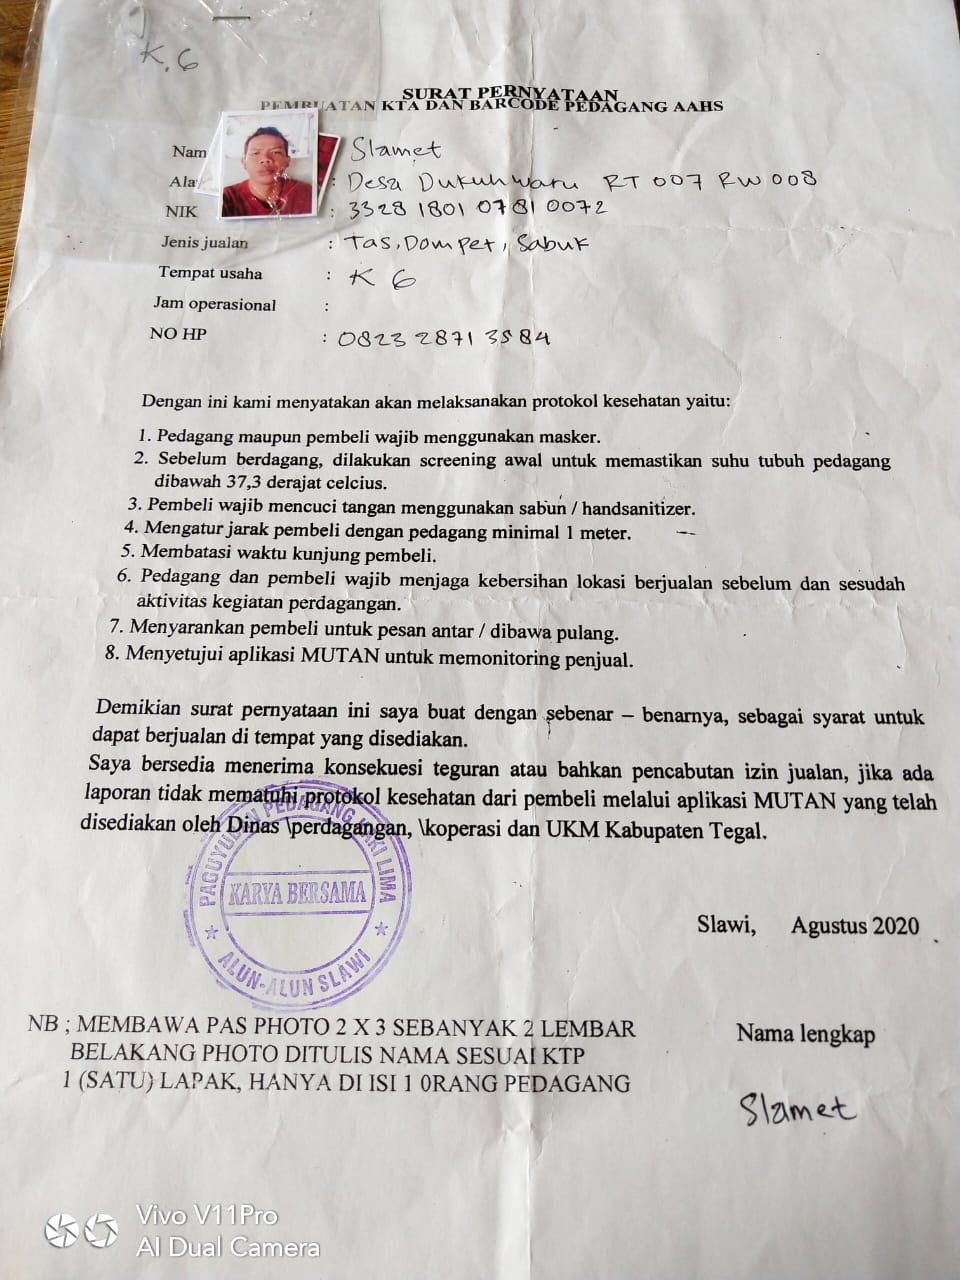 K.6
SURAT PERNYATAAN
PEMBUATAN KTA DAN BARCODE PEDAGANG AAHS
Nam Slamet
Ala : Desa Dukuhwaru RT 007 RW 008
NIK : 3328 1801 0781 0072
Jenis jualan : Tas, Dompet, Sabuk
Tempat usaha : K 6
Jam operasional :
NO HP : 0823 2871 3584
Dengan ini kami menyatakan akan melaksanakan protokol kesehatan yaitu:
1. Pedagang maupun pembeli wajib menggunakan masker.
2. Sebelum berdagang, dilakukan screening awal untuk memastikan suhu tubuh pedagang
dibawah 37,3 derajat celcius.
3. Pembeli wajib mencuci tangan menggunakan sabun / handsanitizer.
4. Mengatur jarak pembeli dengan pedagang minimal 1 meter.
5. Membatasi waktu kunjung pembeli.
6. Pedagang dan pembeli wajib menjaga kebersihan lokasi berjualan sebelum dan sesudah
aktivitas kegiatan perdagangan.
7. Menyarankan pembeli untuk pesan antar / dibawa pulang.
8. Menyetujui aplikasi MUTAN untuk memonitoring penjual.
Demikian surat pernyataan ini saya buat dengan sebenar – benarnya, sebagai syarat untuk
dapat berjualan di tempat yang disediakan.
Saya bersedia menerima konsekuesi teguran atau bahkan pencabutan izin jualan, jika ada
laporan tidak mematuhi protokol kesehatan dari pembeli melalui aplikasi MUTAN yang telah
disediakan oleh Dinas \perdagangan, \koperasi dan UKM Kabupaten Tegal.
PAGUYUBAN PEDAGANG KAKI LIMA
KARYA BERSAMA
ALUN-ALUN SLAWI
Slawi, Agustus 2020
NB ; MEMBAWA PAS PHOTO 2 X 3 SEBANYAK 2 LEMBAR
BELAKANG PHOTO DITULIS NAMA SESUAI KTP
1 (SATU) LAPAK, HANYA DI ISI 1 0RANG PEDAGANG
Nama lengkap
Slamet
Vivo V11Pro
AI Dual Camera